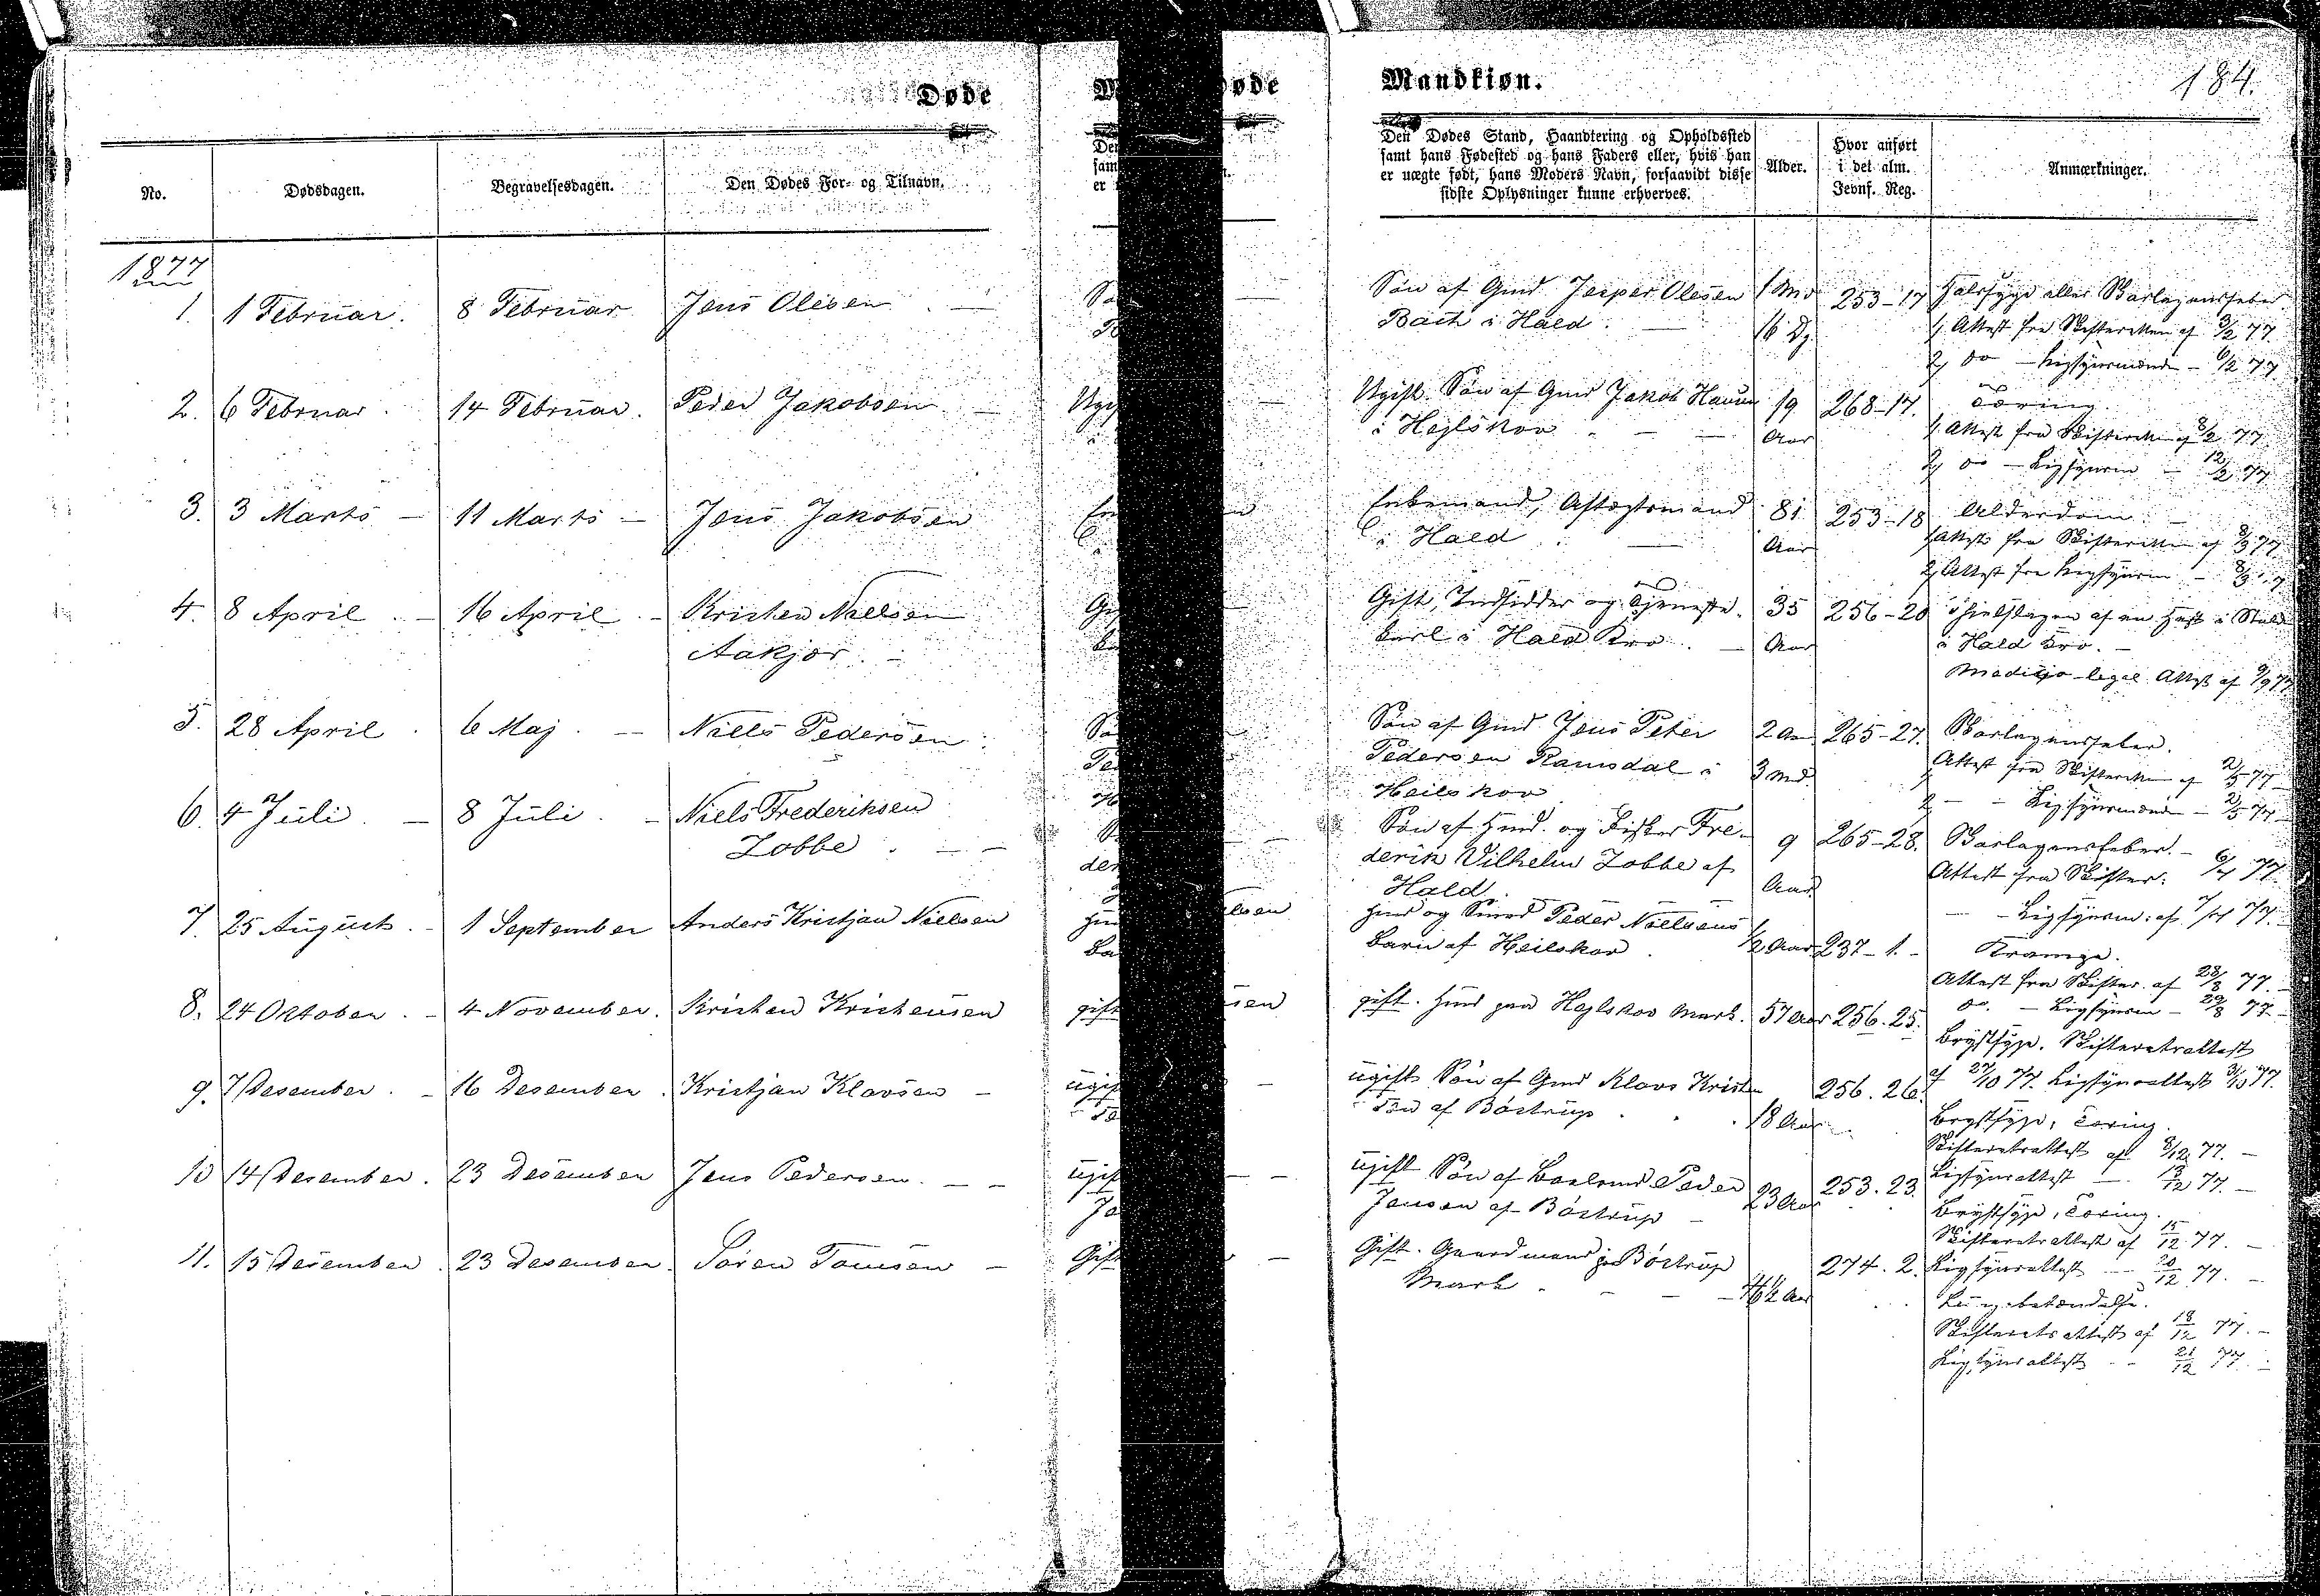 Døde
Mandkiøn.
184.
No.
Dødsdagen.
Begravelsesdagen.
Den Dødes For- og Tilnavn.
Den Dødes Stand, Haandtering og Opholdssted
samt hans Fødested og hans Faders eller, hvis han
er uægte født, hans Moders Navn, forsaavidt disse
sidste Oplysninger kunne erhverves.
Alder.
Hvor anført
i det alm.
Jevnf. Reg.
Anmærkninger.
1877
1. 1 Februar. 8 Februar Jens Olesen
Søn af Gmd Jesper Olesen
Bach i Hald.
1 Md
16 Dg
253-17
Halssyge eller Skarlagensfeber
1, Attest fra Skifteretten af 3/2 77.
2, do - Ligsynsmænd - 6/2 77
2. 6 Februar. 14 Februar. Peder Jakobsen
Ugift. Søn af Gmd Jakob
i Hejlskov
19
Aar
268-17.
Tæring.
1, Attest fra Skifteretten af 8/2 77
2, do - Ligsynsm - 12/2 77
3. 3 Marts - 11 Marts - Jens Jakobsen
Enkemand, Aftægtsmand
i Hald
81
Aar
253-18
Alderdom.
1, Attest fra Skifteretten af 8/3 77
2, Attest fra Ligsynsm - 8/3
4. 8 April - 16 April - Kristen Nielsen
Aakjær.
Gift, Indsidder og Tjeneste-
karl i Hald Kro.
35
Aar
256-20
ihjelslagen af en Hest i Stald
i Hald Kro.
Medico-legal Attest af
5. 28 April. 6 Maj. - Niels Pedersen.
Søn af Gmd Jens Peter
Pedersen Ramsdal i
Heilskov
2 Aar
3 Md.
265-27.
Skarlagensfeber.
1, Attest fra Skifteretten af 2/5 77
2, - - Ligsynsmænd - 2/5 77
6. 4 Juli. - 8 Juli. - Niels Frederiksen
Lobbe
Søn af Hmd. og Fisker Fre-
derik Vilhelm Lobbe af
Hald.
9
Aar
265-28.
Skarlagensfeber. -
Attest fra Skifter. 6/7 77.
- Ligsynsm: af 7/7 77.
7. 25 August. - 1 September Anders Kristjan Nielsen
Hmd og Smed Peder Nielsens
Barn af Heilskov
1/2 Aar
237-1.-
Krampe.
Attest fra Skifter. af 28/8 77.
do. - Ligsynsm - 29/8 77
8. 24 Oktober. - 4 November. Kristen Kristensen
gift. Hmd paa Hejlskov Mark.
57 Aar
256.25.
Brystsyge. Skifteretsattest
af 27/10 77. Ligsynsattest 31/10 77.
9. 7 Desember. - 16 Desember. Kristjan Klavsen -
ugift Søn af Gmd Klavs Kristen-
sen af Børstrup.
18 Aar
256.26.
Brystsyge, Tæring.
Skifteretsattest af 8/12 77. -
Ligsynsattest - 13/12 77. -
10 14 Desember. 23 Desember Jens Pedersen. - -
ugift Søn af Boelsmd Peder
Jensen af Børstrup -
23 Aar
253.23.
Brystsyge, Tæring.
Skifteretsattest af 15/12 77. -
Ligsynsattest - 20/12 77. -
11. 15 Desember. 23 Desember. Søren Tomsen -
Gift. Gaardmand paa Børstrup
Mark
62 Aar
274.2.
Lungebetændelse.
Skifteretsattest af 18/12 77. -
Ligsynsattest - 21/12 77.